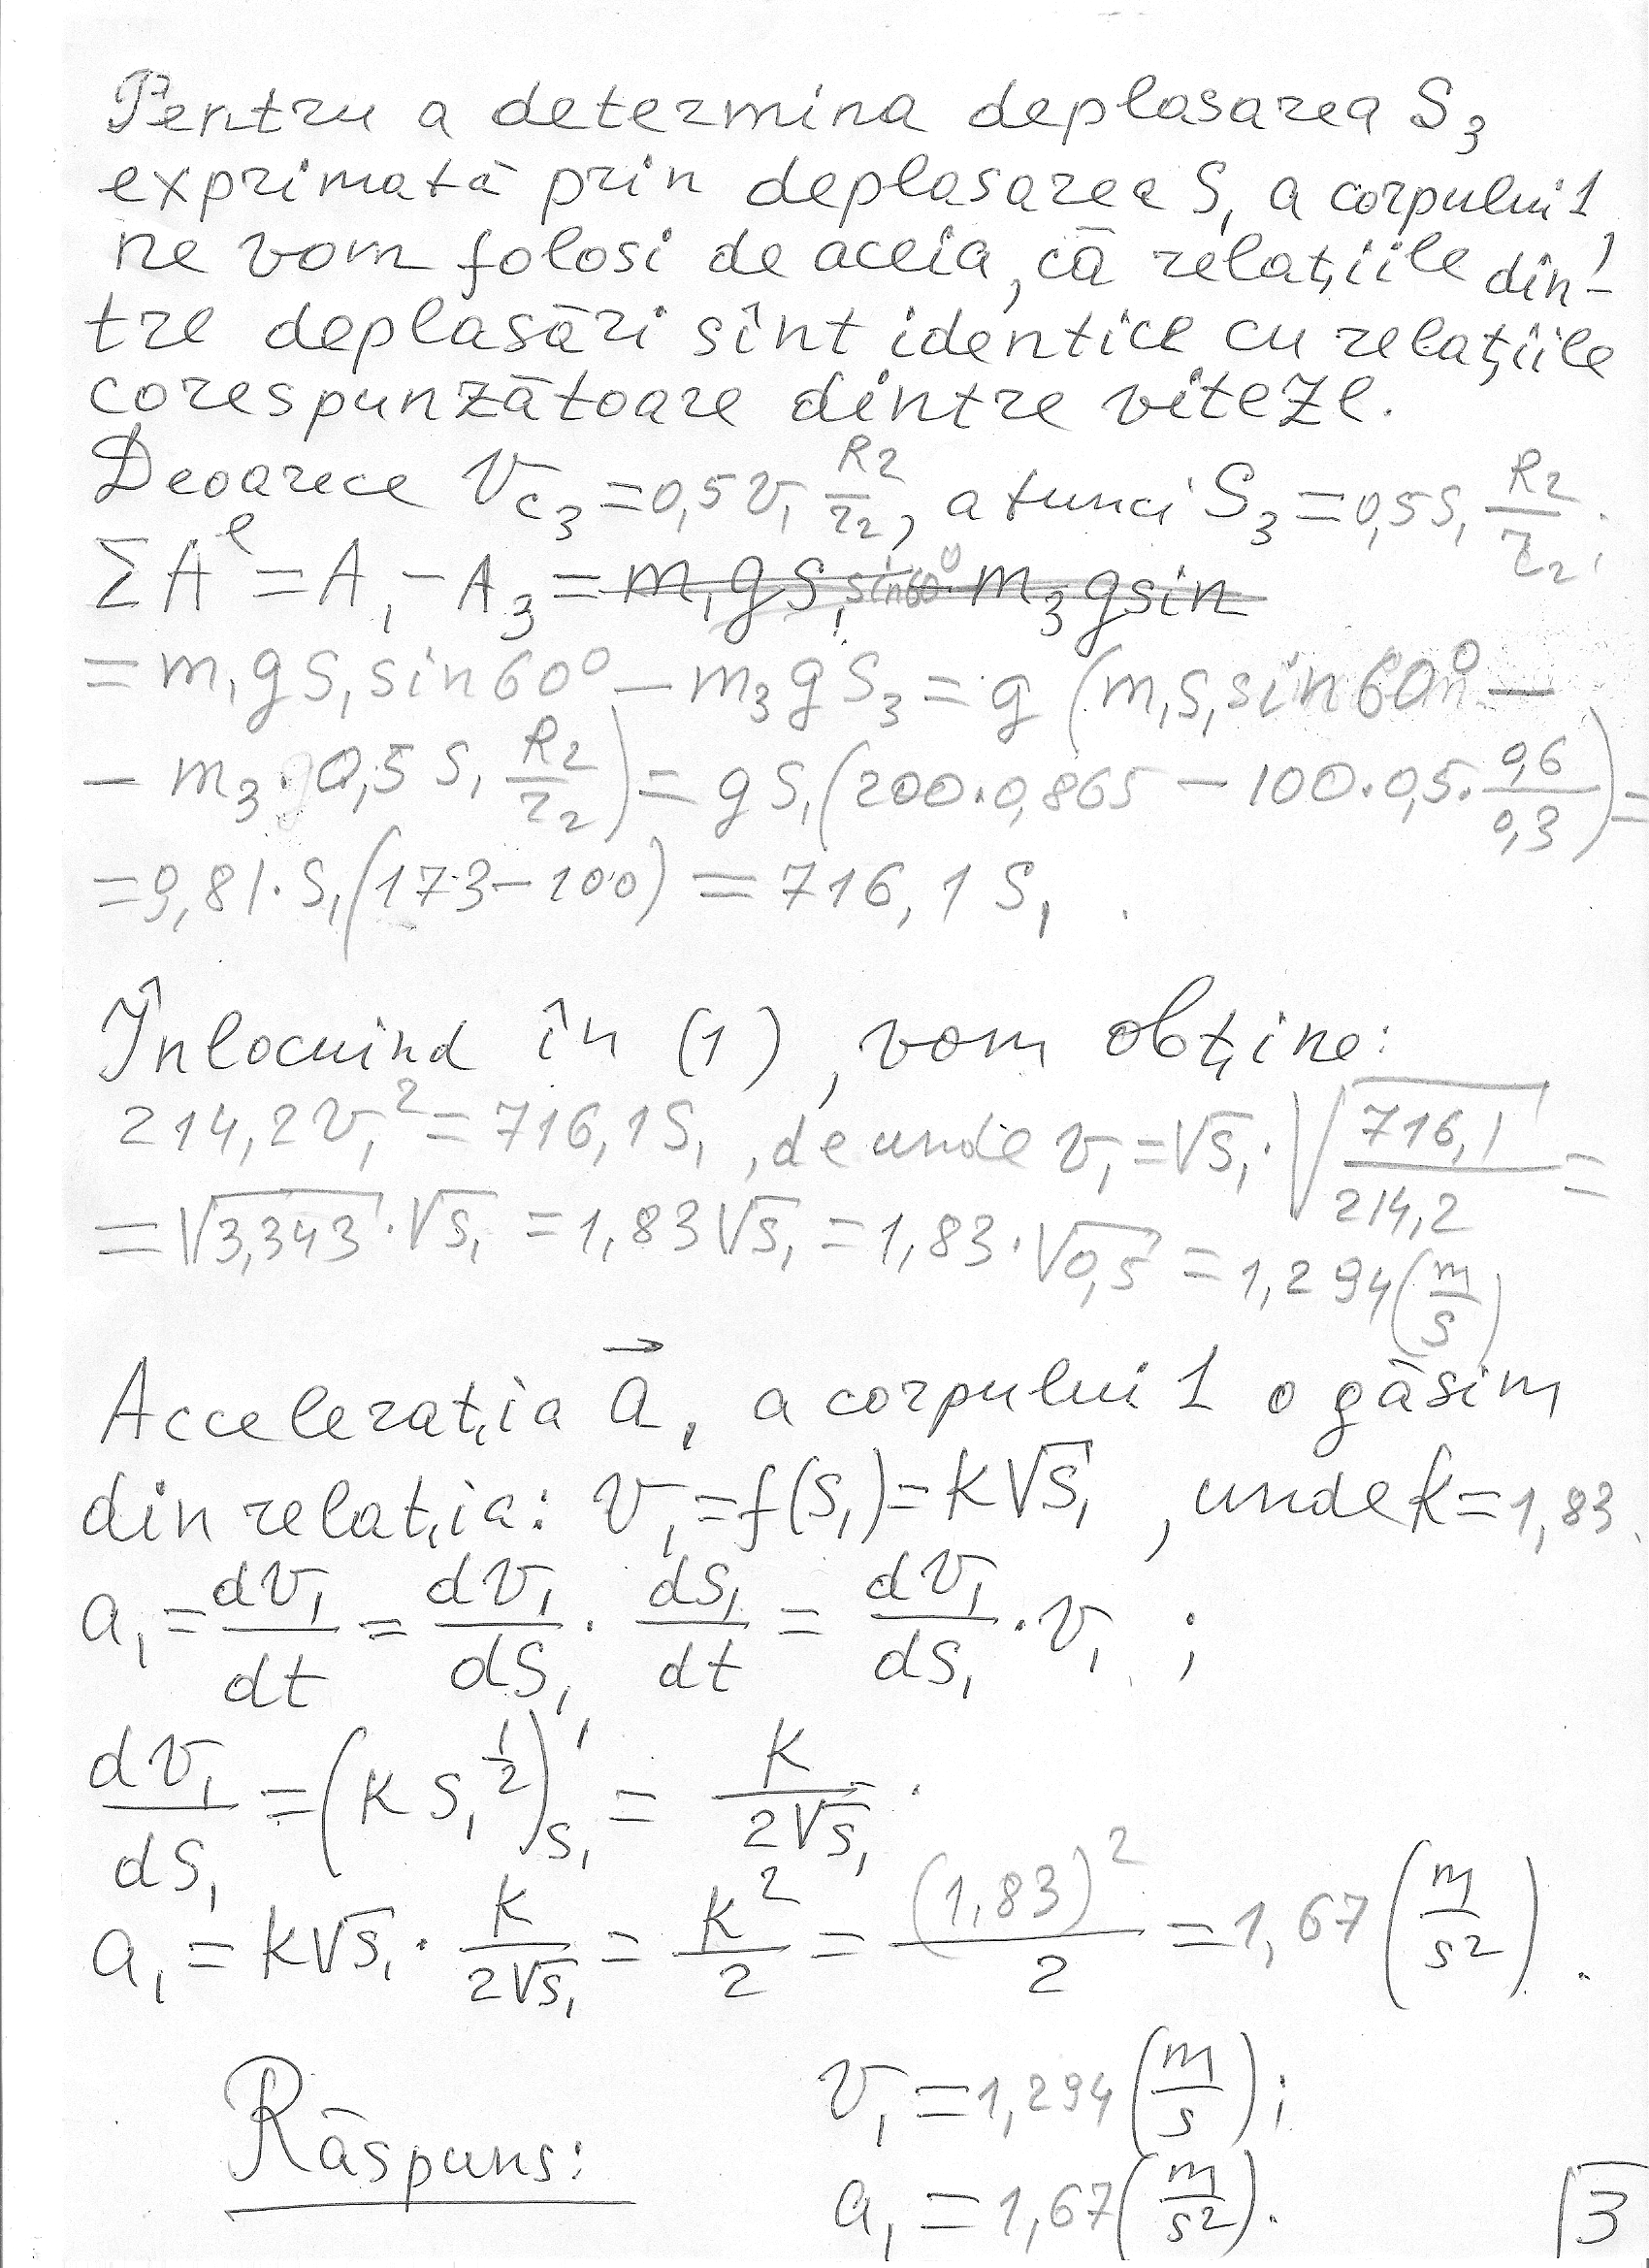 Pentru a determina deplasarea S₃
exprimată prin deplasarea S₁ a corpului 1
ne vom folosi de aceia, că relațiile din-
tre deplasări sînt identice cu relațiile
corespunzătoare dintre viteze.
Deoarece V_{C₃} = 0,5 v₁ R₂/r₂, atunci S₃ = 0,5 S₁ R₂/r₂;
ΣA^e = A₁ - A₃ = m₁gS₁ sin60° - m₃gsin
= m₁gS₁ sin60° - m₃gS₃ = g (m₁S₁ sin60° -
- m₃·0,5 S₁ R₂/r₂) = gS₁(200·0,865 - 100·0,5·0,6/0,3) =
= 9,81·S₁(173-100) = 716,1 S₁.
Înlocuind în (1), vom obține:
214,2 v₁² = 716,1 S₁, de unde v₁ = √S₁·√(716,1/214,2) =
= √3,343·√S₁ = 1,83√S₁ = 1,83·√0,5 = 1,294 (m/s)
Accelerația a⃗₁ a corpului 1 o găsim
din relația: v₁ = f(S₁) = k√S₁, unde k = 1,83.
a₁ = dv₁/dt = dv₁/dS₁ · dS₁/dt = dv₁/dS₁ · v₁ ;
dv₁/dS₁ = (k S₁^{1/2})'_{S₁} = k/(2√S₁).
a₁ = k√S₁ · k/(2√S₁) = k²/2 = (1,83)²/2 = 1,67 (m/s²).
Răspuns: v₁ = 1,294 (m/s);
a₁ = 1,67 (m/s²).
3